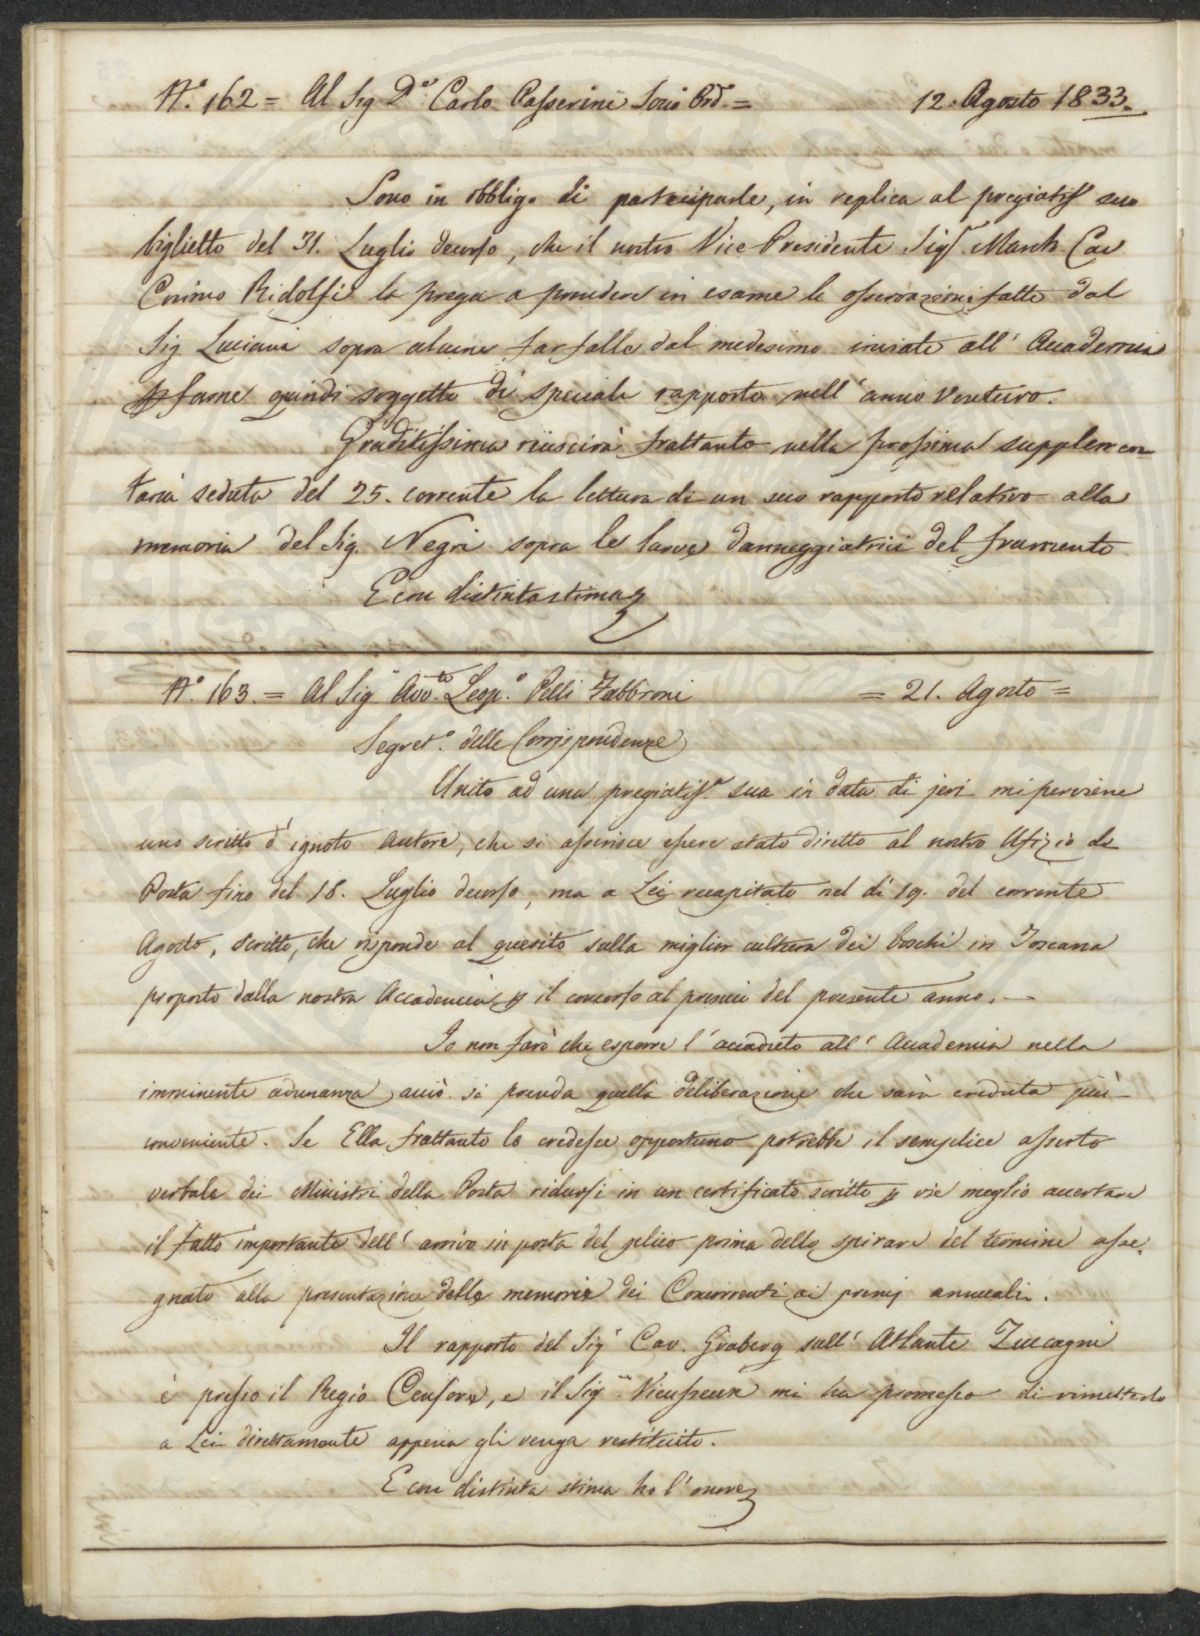 N.º 162 = Al Sig D.r Carlo Passerini Socio Ord.º = 12. Agosto 1833.
Sono in obbligo di parteciparle, in replica al pregiatiss suo
biglietto del 31. Luglio decorso, che il nostro Vice Presidente Sigr. March Cav
Cosimo Ridolfi la prega a prendere in esame le osservazioni fatte dal
Sig Luciani sopra alcune farfalle dal medesimo inviate all' Accademia
p farne quindi soggetto di speciale rapporto nell' anno venturo.
Graditissima riuscirà frattanto nella prossima supplemen-
taria seduta del 25. corrente la lettura di un suo rapporto relativo alla
memoria del Sig. Negri sopra le larve danneggiatrici del frumento
E con distinta stima
N.º 163. = Al Sig Avv.to Leop.º Pelli Fabbroni = 21. Agosto =
Segret.º delle Corrispondenze
Unito ad una pregiatiss.a sua in data di jeri mi perviene
uno scritto d'ignoto Autore, che si asserisce essere stato diretto al nostro Ufizio di
Posta fino del 18. Luglio decorso, ma a Lei recapitato nel dì 19. del corrente
Agosto, scritto, che risponde al quesito sulla miglior cultura dei boschi in Toscana
proposto dalla nostra Accademia p il concorso al premio del presente anno. —
Io non farò che esporre l'accaduto all' Accademia nella
imminente adunanza, acciò si prenda quella deliberazione che sarà creduta più
conveniente. Se Ella frattanto lo credesse opportuno potrebbe il semplice asserto
verbale dei Ministri della Posta ridursi in un certificato scritto p vie meglio accertare
il fatto importante dell' arrivo in posta del plico prima dello spirare del termine asse-
gnato alla presentazione delle memorie dei Concorrenti ai premj annuali.
Il rapporto del Sigr Cav. Graberg sull' Atlante Zuccagni
è presso il Regio Censore, e il Sigr. Vieusseux mi ha promesso di rimetterlo
a Lei direttamente appena gli venga restituito.
E con distinta stima ho l'onore